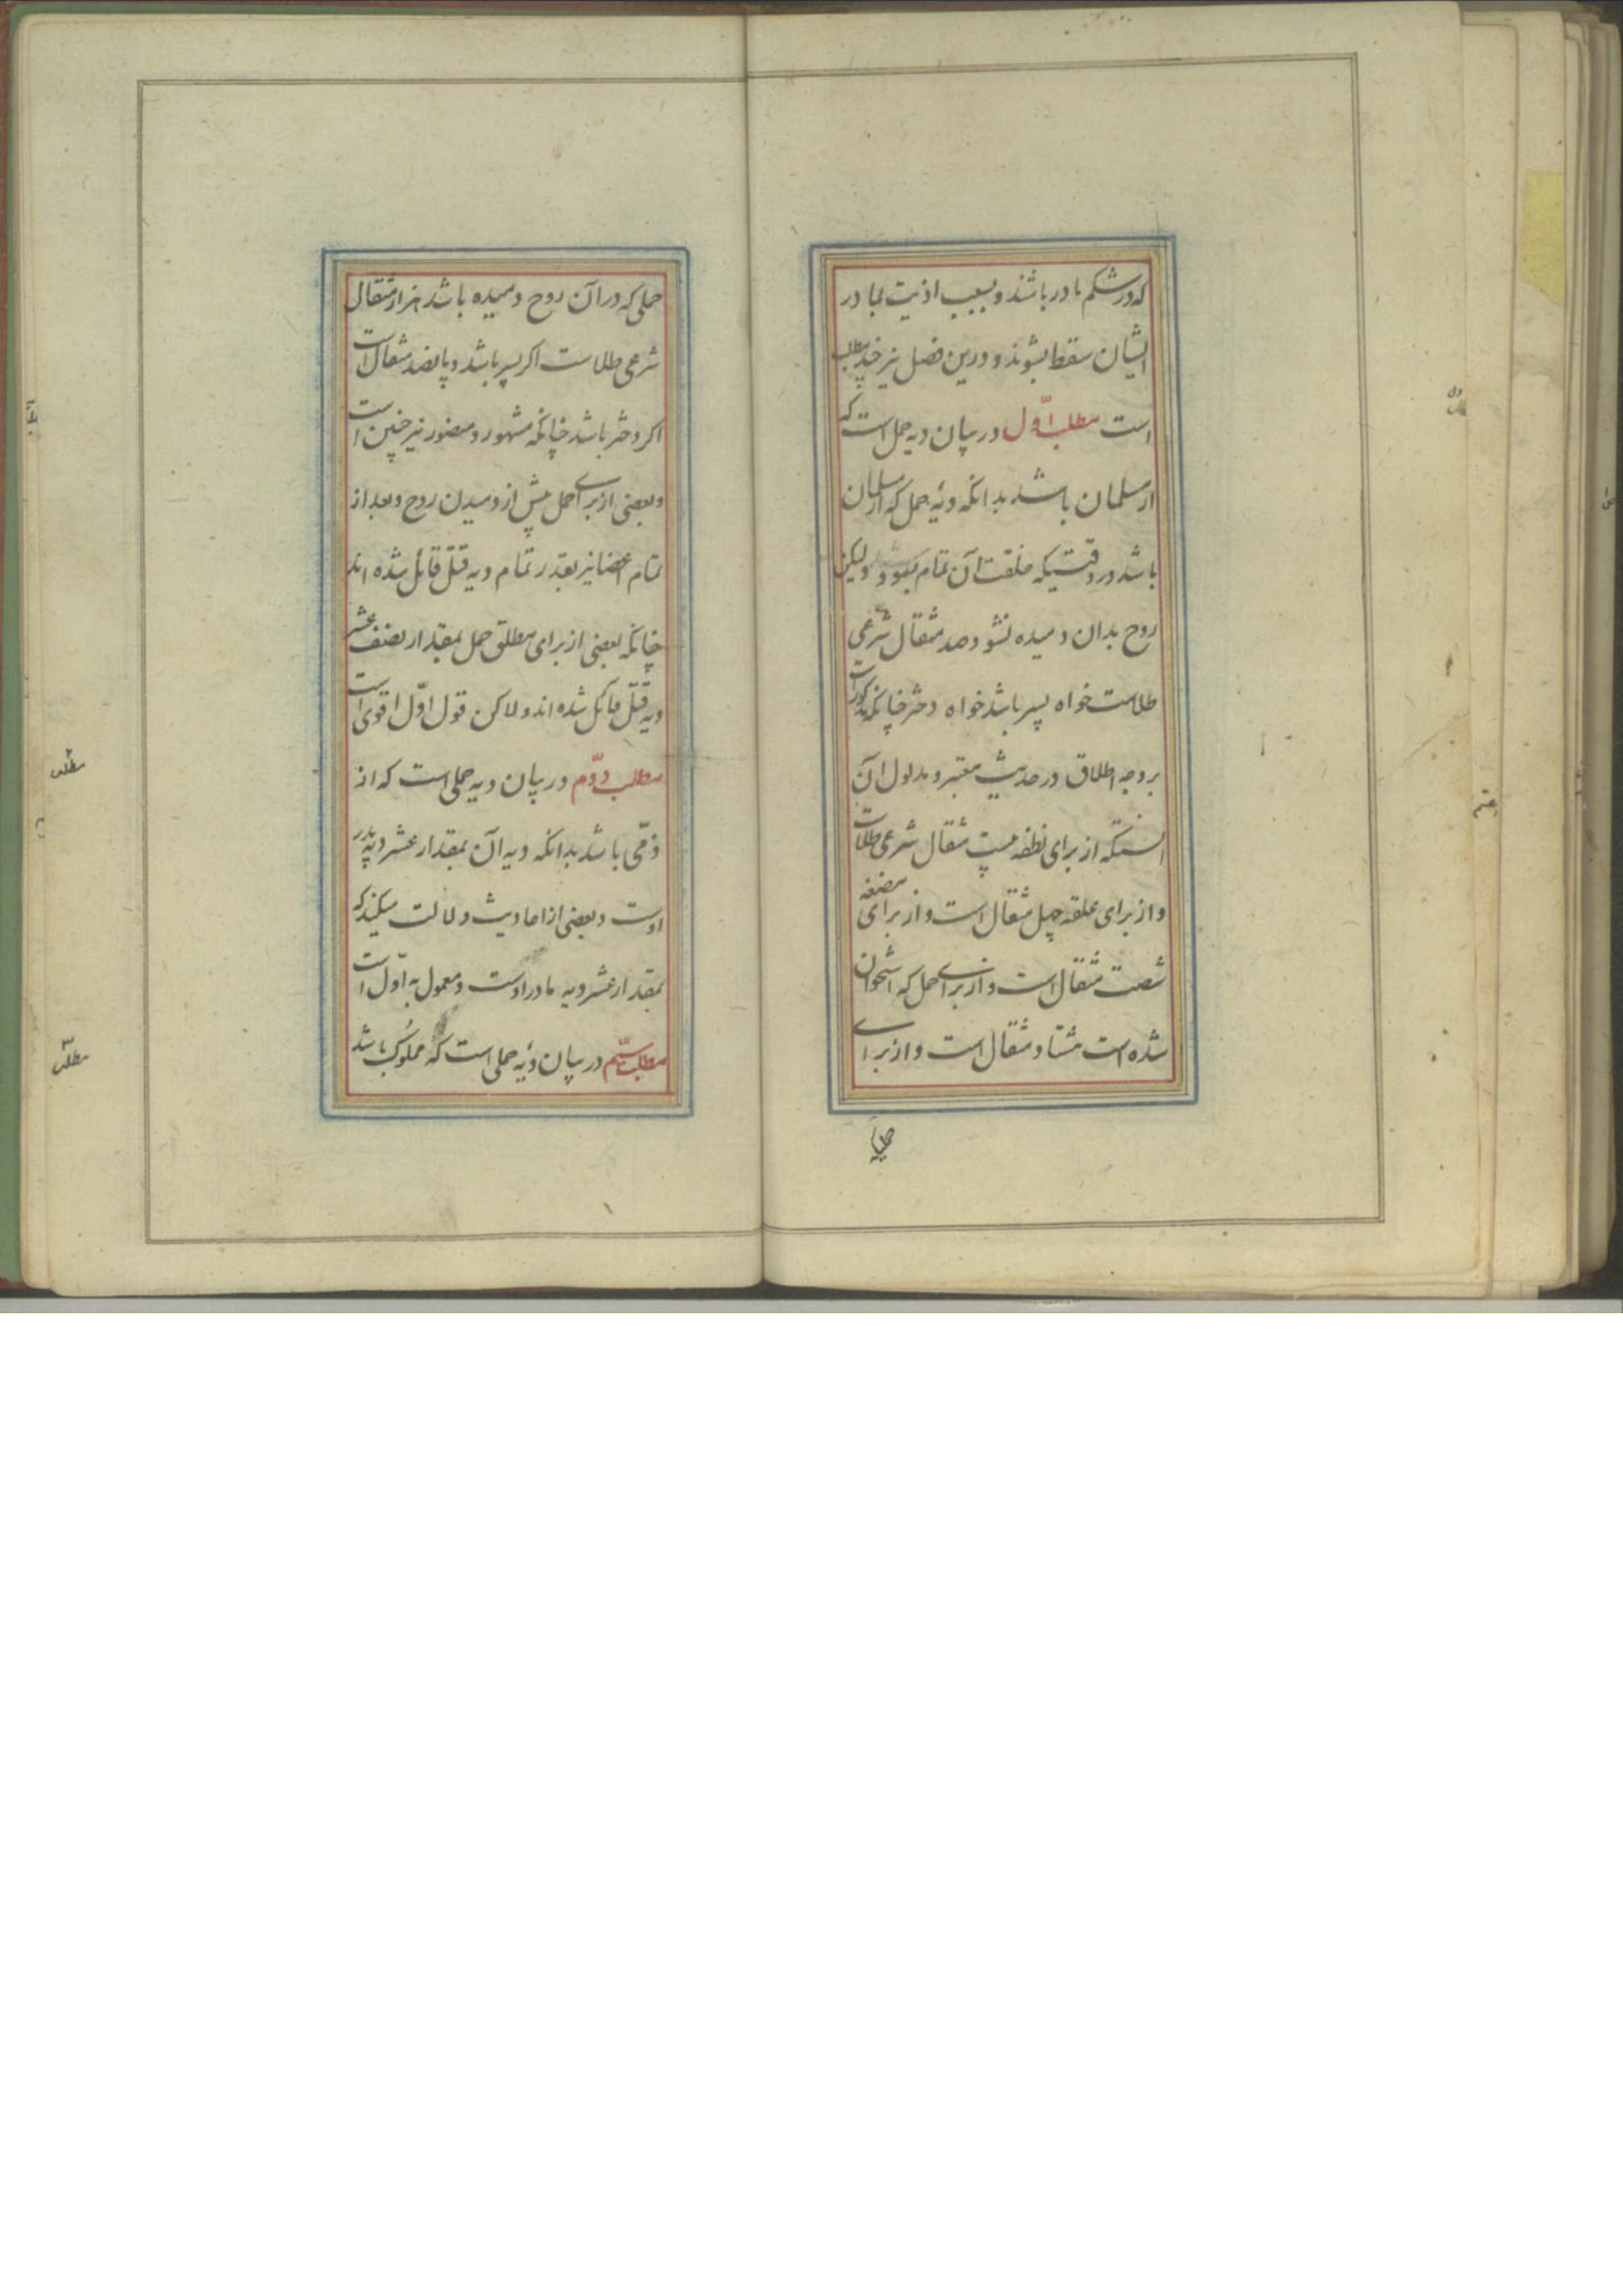 که در شکم مادر باشند و بسبب اذیت بمادر
ایشان سقط بشوند و درین فصل نیز چند مطلب
است مطلب اوّل در بیان دیه حمل است که
از مسلمان باشد بدانکه دیۀ حمل که از مسلمان
باشد در وقتیکه خلقت آن تمام بشود و لیکن
روح بدان دمیده نشود صد مثقال شرعی
طلاست خواه پسر باشد خواه دختر چنانکه مذکور است
بر وجه اطلاق در حدیث معتبر و مدلول آن
اینستکه از برای نطفه بیست مثقال شرعی طلاست
و از برای علقه چهل مثقال است و از برای مضغه
شصت مثقال است و از برای حمل که استخوان
شده است هشتاد مثقال است و از برای
حملی که در آن روح دمیده باشد هزار مثقال
شرعی طلاست اکر پسر باشد و پانصد مثقال است
اکر دختر باشد چنانکه مشهور و منصور نیز چنین است
و بعضی از برای حمل پیش از دمیدن روح و بعد از
تمام اعضا نیز بقدر تمام دیه قتل قائل شده اند
چنانکه بعضی از برای مطلق حمل بمقدار نصف عشر
دیه قتل قائل شده اند و لاکن قول اوّل اقوی است
مطلب دوّم در بیان دیه حملی است که از
ذمّی باشد بدانکه دیه آن بمقدار عشر دیه پدر
اوست و بعضی از احادیث دلالت میکند که
بمقدار عشر دیه مادر اوست و معمول به اوّل است
مطلب سیّم در بیان دیۀ حملی است که مملوک باشد
مطلب
مطلب